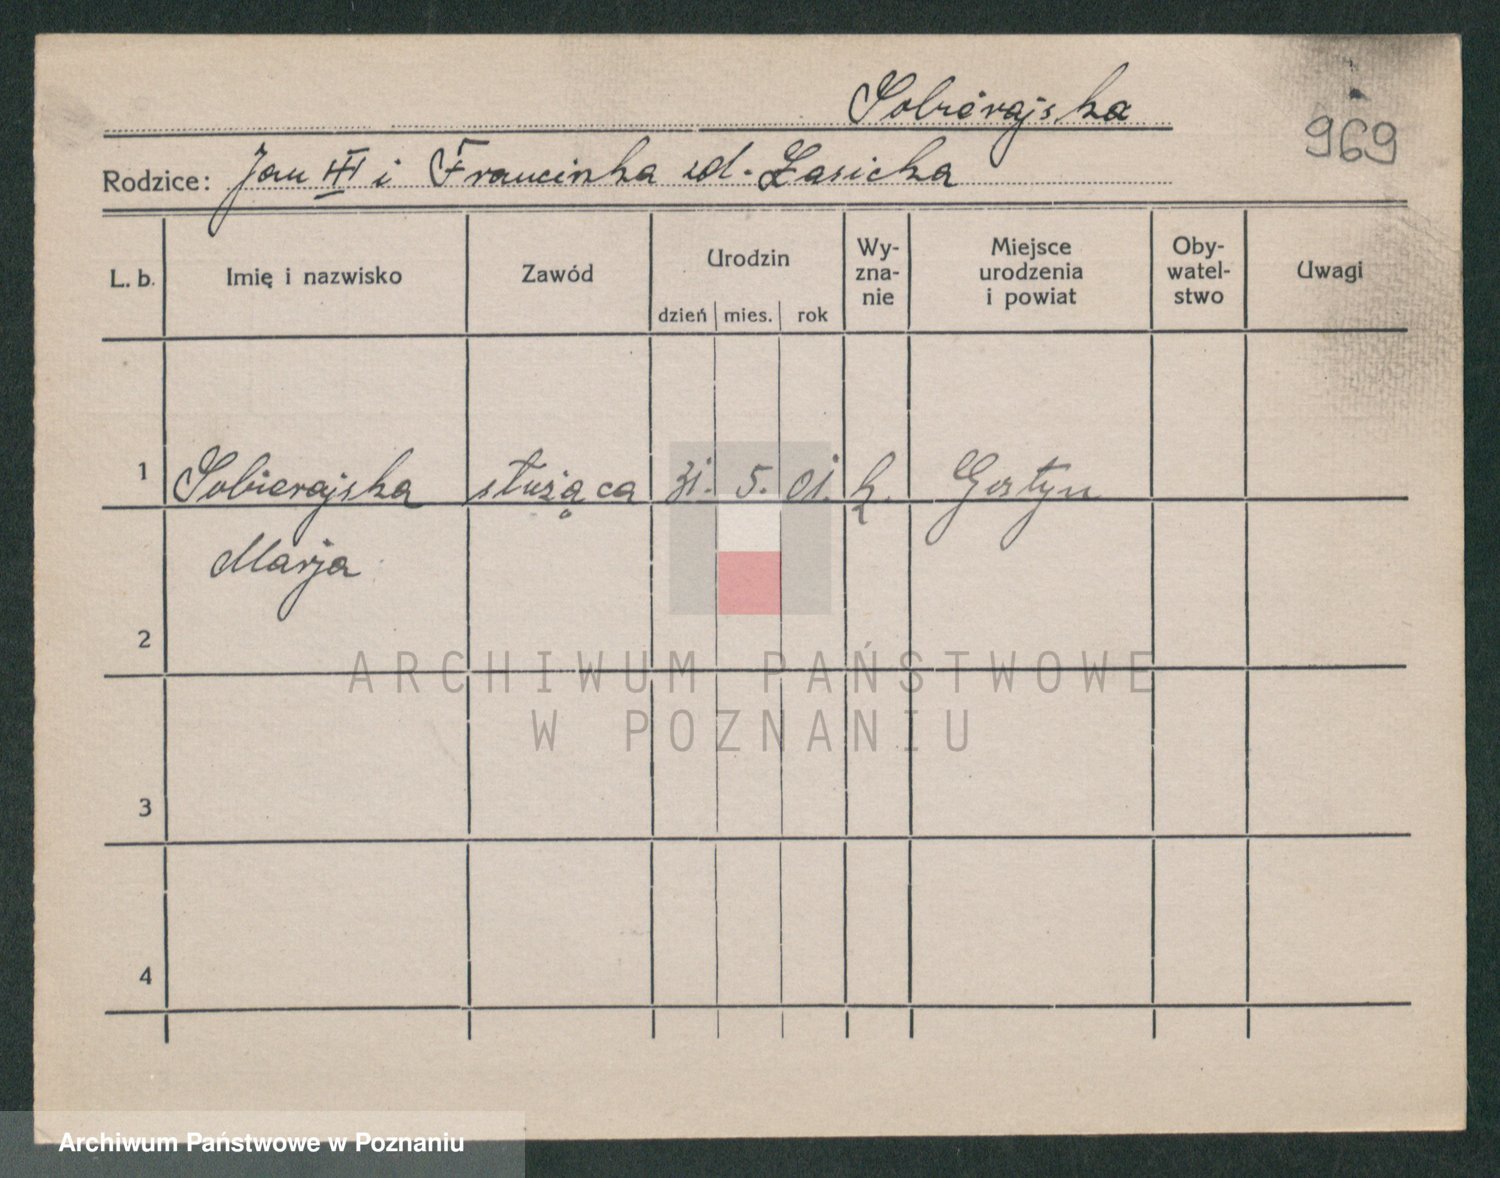 Sobierajska
969
Rodzice: Jan III i Franciszka zd. Łasicka
L. b. Imię i nazwisko Zawód Urodzin Wy- zna- nie Miejsce urodzenia i powiat Oby- watel- stwo Uwagi
dzień mies. rok
1 Sobierajska służąca 31. 5. 01. k. Gostyn
Marja
2
ARCHIWUM PAŃSTWOWE
W POZNANIU
3
4
Archiwum Państwowe w Poznaniu